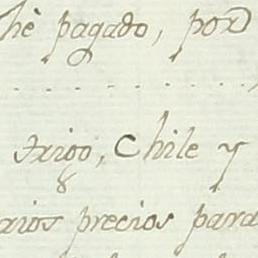 hè pagado, por
trigo, Chile y
arios precios para